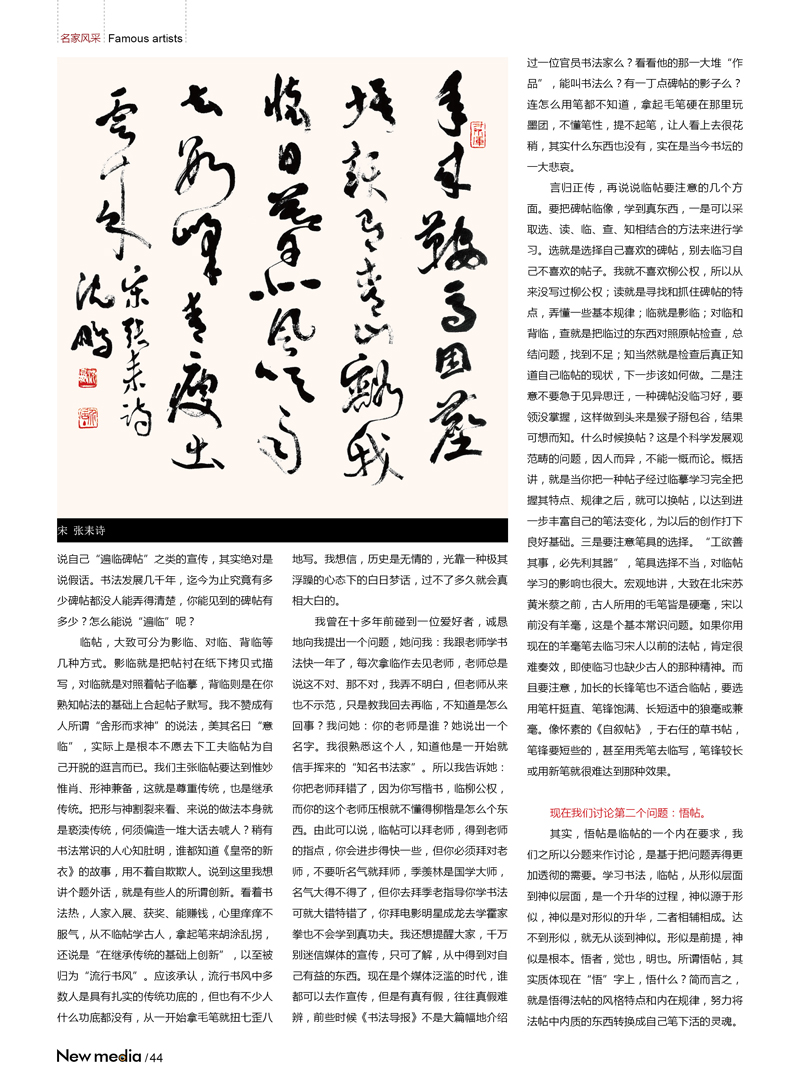 名家风采 Famous artists
年来鞍马困尘
埃赖有青山豁我
怀日暮北风吹雨
去数峰青瘦出
云来
宋张耒诗
沈鹏
宋 张耒诗
说自己“遍临碑帖”之类的宣传，其实绝对是
说假话。书法发展几千年，迄今为止究竟有多
少碑帖都没人能弄得清楚，你能见到的碑帖有
多少？怎么能说“遍临”呢？
临帖，大致可分为影临、对临、背临等
几种方式。影临就是把帖衬在纸下拷贝式描
写，对临就是对照着帖子临摹，背临则是在你
熟知帖法的基础上合起帖子默写。我不赞成有
人所谓“舍形而求神”的说法，美其名曰“意
临”，实际上是根本不愿去下工夫临帖为自
己开脱的逛言而已。我们主张临帖要达到惟妙
惟肖、形神兼备，这就是尊重传统，也是继承
传统。把形与神割裂来看、来说的做法本身就
是亵渎传统，何须偏造一堆大话去唬人？稍有
书法常识的人心知肚明，谁都知道《皇帝的新
衣》的故事，用不着自欺欺人。说到这里我想
讲个题外话，就是有些人的所谓创新。看着书
法热，人家入展、获奖、能赚钱，心里痒痒不
服气，从不临帖学古人，拿起笔来胡涂乱拐，
还说是“在继承传统的基础上创新”，以至被
归为“流行书风”。应该承认，流行书风中多
数人是具有扎实的传统功底的，但也有不少人
什么功底都没有，从一开始拿毛笔就扭七歪八
地写。我想信，历史是无情的，光靠一种极其
浮躁的心态下的白日梦话，过不了多久就会真
相大白的。
我曾在十多年前碰到一位爱好者，诚恳
地向我提出一个问题，她问我：我跟老师学书
法快一年了，每次拿临作去见老师，老师总是
说这不对、那不对，我弄不明白，但老师从来
也不示范，只是教我回去再临，不知道是怎么
回事？我问她：你的老师是谁？她说出一个
名字。我很熟悉这个人，知道他是一开始就
信手挥来的“知名书法家”。所以我告诉她：
你把老师拜错了，因为你写楷书，临柳公权，
而你的这个老师压根就不懂得柳楷是怎么个东
西。由此可以说，临帖可以拜老师，得到老师
的指点，你会进步得快一些，但你必须拜对老
师，不要听名气就拜师，季羡林是国学大师，
名气大得不得了，但你去拜季老指导你学书法
可就大错特错了，你拜电影明星成龙去学霍家
拳也不会学到真功夫。我还想提醒大家，千万
别迷信媒体的宣传，只可了解，从中得到对自
己有益的东西。现在是个媒体泛滥的时代，谁
都可以去作宣传，但是有真有假，往往真假难
辨，前些时候《书法导报》不是大篇幅地介绍
过一位官员书法家么？看看他的那一大堆“作
品”，能叫书法么？有一丁点碑帖的影子么？
连怎么用笔都不知道，拿起毛笔硬在那里玩
墨团，不懂笔性，提不起笔，让人看上去很花
稍，其实什么东西也没有，实在是当今书坛的
一大悲哀。
言归正传，再说说临帖要注意的几个方
面。要把碑帖临像，学到真东西，一是可以采
取选、读、临、查、知相结合的方法来进行学
习。选就是选择自己喜欢的碑帖，别去临习自
己不喜欢的帖子。我就不喜欢柳公权，所以从
来没写过柳公权；读就是寻找和抓住碑帖的特
点，弄懂一些基本规律；临就是影临；对临和
背临，查就是把临过的东西对照原帖检查，总
结问题，找到不足；知当然就是检查后真正知
道自己临帖的现状，下一步该如何做。二是注
意不要急于见异思迁，一种碑帖没临习好，要
领没掌握，这样做到头来是猴子掰包谷，结果
可想而知。什么时候换帖？这是个科学发展观
范畴的问题，因人而异，不能一慨而论。概括
讲，就是当你把一种帖子经过临摹学习完全把
握其特点、规律之后，就可以换帖，以达到进
一步丰富自己的笔法变化，为以后的创作打下
良好基础。三是要注意笔具的选择。“工欲善
其事，必先利其器”，笔具选择不当，对临帖
学习的影响也很大。宏观地讲，大致在北宋苏
黄米蔡之前，古人所用的毛笔皆是硬毫，宋以
前没有羊毫，这是个基本常识问题。如果你用
现在的羊毫笔去临习宋人以前的法帖，肯定很
难奏效，即使临习也缺少古人的那种精神。而
且要注意，加长的长锋笔也不适合临帖，要选
用笔杆挺直、笔锋饱满、长短适中的狼毫或兼
毫。像怀素的《自叙帖》，于右任的草书帖，
笔锋要短些的，甚至用秃笔去临写，笔锋较长
或用新笔就很难达到那种效果。
现在我们讨论第二个问题：悟帖。
其实，悟帖是临帖的一个内在要求，我
们之所以分题来作讨论，是基于把问题弄得更
加透彻的需要。学习书法，临帖，从形似层面
到神似层面，是一个升华的过程，神似源于形
似，神似是对形似的升华，二者相辅相成。达
不到形似，就无从谈到神似。形似是前提，神
似是根本。悟者，觉也，明也。所谓悟帖，其
实质体现在“悟”字上，悟什么？简而言之，
就是悟得法帖的风格特点和内在规律，努力将
法帖中内质的东西转换成自己笔下活的灵魂。
New media /44